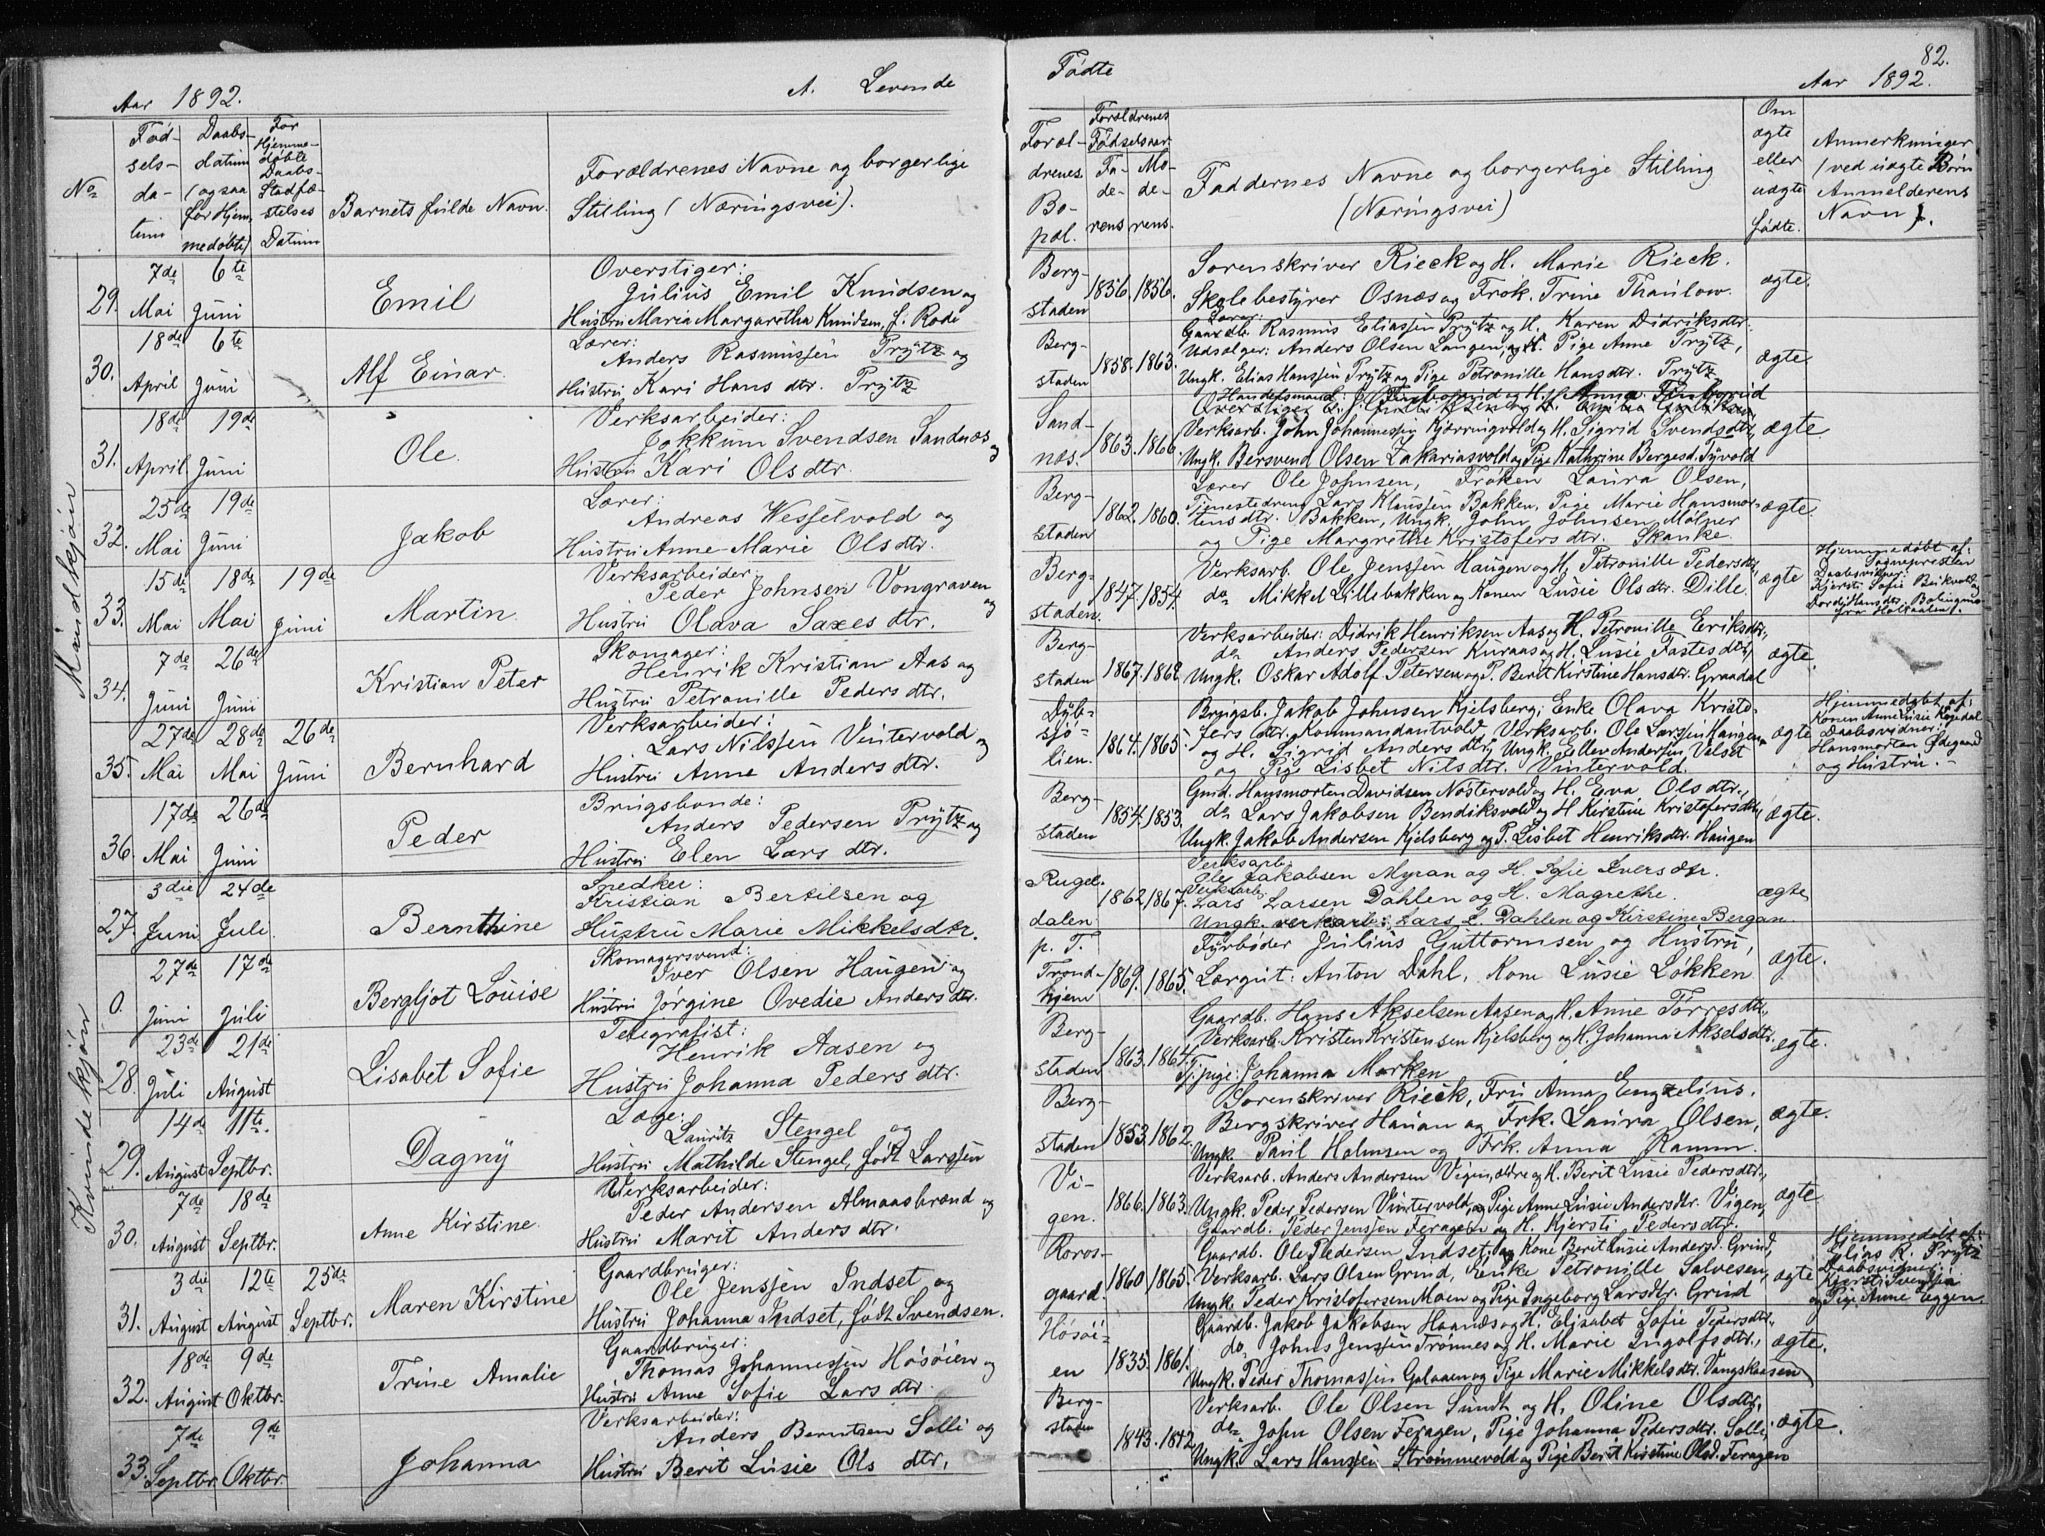 Aar 1892.
A. Levende
No
Fød-
sels-
da-
tum
Daabs-
datum
(ogsaa
for Hjem-
medøbte)
For
Hjemme-
døbte
Daabs-
Stadfæ-
stelses
Datum
Barnets fulde Navn.
Forældrenes Navne og borgerlige
Stilling (Næringsvei).
Mandkjøn
29.
7de Mai
6te Juni
Emil
Overstiger:
Julius Emil Knudsen og
Hustru Maria Margaretha Knudsen, f. Rode
30.
18de April
6te Juni
Alf Einar.
Lærer:
Anders Rasmussen Prytz og
Hustru Kari Hans dtr. Prytz
31.
18de April
19de Juni
Ole.
Verksarbeider:
Jokkum Svendsen Sandnæs og
Hustru Kari Olsdtr.
32.
25de Mai
19de Juni
Jakob
Lærer:
Andreas Wesselvold og
Hustru Anne-Marie Olsdtr.
33.
15de Mai
18de Mai
19de Juni
Martin.
Verksarbeider:
Peder Johnsen Vongraven og
Hustru Olava Saxesdtr.
34.
7de Juni
26de Juni
Kristian Peter
Skomager:
Henrik Kristian Aas og
Hustru Petronille Pedersdtr.
35.
27de Mai
28de Mai
26de Juni
Bernhard
Verksarbeider:
Lars Nilssen Vintervold og
Hustru Anne Andersdtr.
36.
17de Mai
26de Juni
Peder
Brugsbonde:
Anders Pedersen Prytz og
Hustru Elen Larsdtr.
Kvindekjøn
27.
3die Juni
24de Juli
Bernthine
Snedker:
Kristian Bertilsen og
Hustru Marie Mikkelsdtr.
0.
27de Juni
17de Juli
Bergljot Louise
Skomagersvend:
Iver Olsen Haugen og
Hustru Jørgine Ovedie Andersdtr.
28.
23de Juli
21de August
Lisabet Sofie
Telegrafist:
Henrik Aasen og
Hustru Johanna Pedersdtr.
29.
14de August
11te Septbr.
Dagny
Læge:
Lauritz Stengel og
Hustru Mathilde Stengel, født Larssen
30.
7de August
18de Septbr.
Anne Kirstine.
Verksarbeider:
Peder Andersen Almaasbrænd og
Hustru Marit Andersdtr.
31.
3die August
12te August
25de Septbr.
Maren Kirstine
Gaardbruger:
Ole Jenssen Indset og
Hustru Johanna Indset, født Svendsen.
32.
18de August
9de Oktbr.
Trine Amalie
Gaardbruger:
Thomas Johannessen Høsøien og
Hustru Anne Sofie Larsdtr.
33.
7de Septbr.
9de Oktbr.
Johanna
Verksarbeider:
Anders Berntsen Solli og
Hustru Berit Lusie Ols dtr.
Fødte
82.
Aar 1892.
Foræl-
drenes
Bo-
pæl.
Forældrenes
Fødselsaar
Fa-
de-
rens
Mo-
de-
rens.
Faddernes Navne og borgerlige Stilling
(Næringsvei)
Om
ægte
eller
uægte
fødte.
Anmerkninger
(ved uægte Børn
Anmelderens
Navn).
Berg-
staden
1856. 1856.
Sorenskriver Rieck og H. Marie Rieck.
Skolebestyrer Osnæs og Frøk. Trine Thaulow.
ægte.
Berg-
staden
1858. 1863.
Lærer:
Gaardb. Rasmus Eliassen Prytz og H. Karen Didriksdtr.
Udsælger: Anders Olsen Langen, og Pige Anne Prytz,
Ungk. Elias Hanssen Prytz og Pige Petronille Hansdtr. Prytz
ægte
Sand-
næs.
1863. 1866.
Handelsmand: og H. Anna
Overstiger
Verksarb. John Johannessen Kjørringvold og H. Sigrid Svendsdtr.,
Ungk. Bersvend Olsen Zakariasvold og Pige Kathrine Bergesd. Tyvold
ægte
Berg-
staden
1862. 1860.
Lærer Ole Johnsen, Frøken Laura Olsen,
Tjenestedreng Lars Klaussen Bakken, Pige Marie Hansmor-
tensdtr. Bakken, Ungk. John Johnsen Mølner
og Pige Margrethe Kristofersdtr. Skanke.
ægte.
Berg-
staden.
1847. 1854.
Verksarb. Ole Jenssen Haugen og H. Petronille Pedersdtr.
do. Mikkel Lillebakken og Konen Lusie Olsdtr. Dille
ægte
Hjemmedøbt af:
Sognepresten
Daabsvidner:
Kjersti Sofie
fra Holtaalen.
Berg-
staden
1867. 1862
Verksarbeider: Didrik Henriksen Aas og H. Petronille Eriksdtr.,
do. Anders Pedersen Kuraas og H. Lusie Fastesdtr.,
Ungk. Oskar Adolf Petersen og P. Berit Kirstine Hansdtr. Graadal
ægte.
Dyb-
sjø-
lien.
1864. 1865.
Brugsb. Jakob Johnsen Kjelsberg, Enke Olava Kristo-
fersdtr. Kommandantvold, Verksarb. Ole Larssen Haugen
og H. Sigrid Andersdtr., Ungk. Ellev Andersen Volset
og Pige Lisbet Nilsdtr. Vintervold.
ægte
Hjemmedøbt af:
Konen Anne Lusie
Daabsvidner:
Hansmorten Ødegaard
og Hustru.
Berg-
staden
1854. 1853.
Gmd. Hansmorten Davidsen Nostervold og H. Eva Olsdtr.,
do. Lars Jakobsen Bendiksvold og H. Kirstine Kristofersdtr.,
Ungk. Jakob Andersen Kjelsberg og P. Lisbet Henriksdtr. Haugen
ægte.
Rugel-
dalen
1862. 1867.
Verksarb.
Ole Jakobsen Myran og H. Sofie Iversdtr.
Verksarb.
Lars Larsen Dahlen og H. Magrethe.
Ungk. verksarb.: Lars L. Dahlen og Kirstine Bergan.
ægte
p. T.
Trond-
hjem
1869. 1865.
Fyrbøder Julius Guttormsen og Hustru,
Lærgut: Anton Dahl, Kone Lusie Løkken
ægte.
Berg-
staden
1863. 1864.
Gaardb. Hans Akselsen Aasen og H. Anne Torresdtr.,
Verksarb. Kristen Kristensen Kjelsberg og H. Johanna Akselsdtr.
Tj.pige: Johanna Marken
ægte.
Berg-
staden
1853. 1862.
Sorenskriver Rieck, Fru Anna Engzelius.
Bergskriver Hauan og Frk. Laura Olsen,
Ungk. Paul Holmsen og Frk. Anna Ramm.
ægte.
Vi-
gen.
1866. 1863.
Verksarb. Anders Andersen Vigen, ældre og H. Berit Lusie Pedersdtr.,
Ungk. Peder Pedersen Vintervold, og Pige Anne Lusie Andersdtr. Vigen,
Gaardb. Peder Jenssen Feragen og H. Kjersti Pedersdtr.
ægte
Røros-
gaard.
1860. 1865.
Gaardb. Ole Pedersen Indset, og Kone Berit Lusie Andersd. Grind,
Verksarb. Lars Olsen Grind, Enke Petronille Salvesen,
Ungk. Peder Kristofersen Moen og Pige Ingeborg Larsdtr. Grind
ægte
Hjemmedøbt af:
Elias R. Prytz
Daabsvidner:
Kjersti Svendsen
og Pige Anne Eggen.
Høsøi-
en
1835. 1861.
Gaardb. Jakob Jakobsen Haanæs og H. Elisabet Sofie Pedersdtr.,
do. Johns Jenssen Trønnes og H. Marie Ingolfsdtr.,
Ungk. Peder Thomassen Galaaen og Pige Marie Mikkelsdtr. Vangskaasen
ægte.
Berg-
staden
1843. 1842.
Verksarb. Ole Olsen Sundt og H. Oline Olsdtr.,
do. John Olsen Feragen, Pige Johanna Pedersdtr. Solli,
Ungk. Lars Hanssen Strømmevold og Pige Berit Kirstine Olsd. Feragen
ægte.